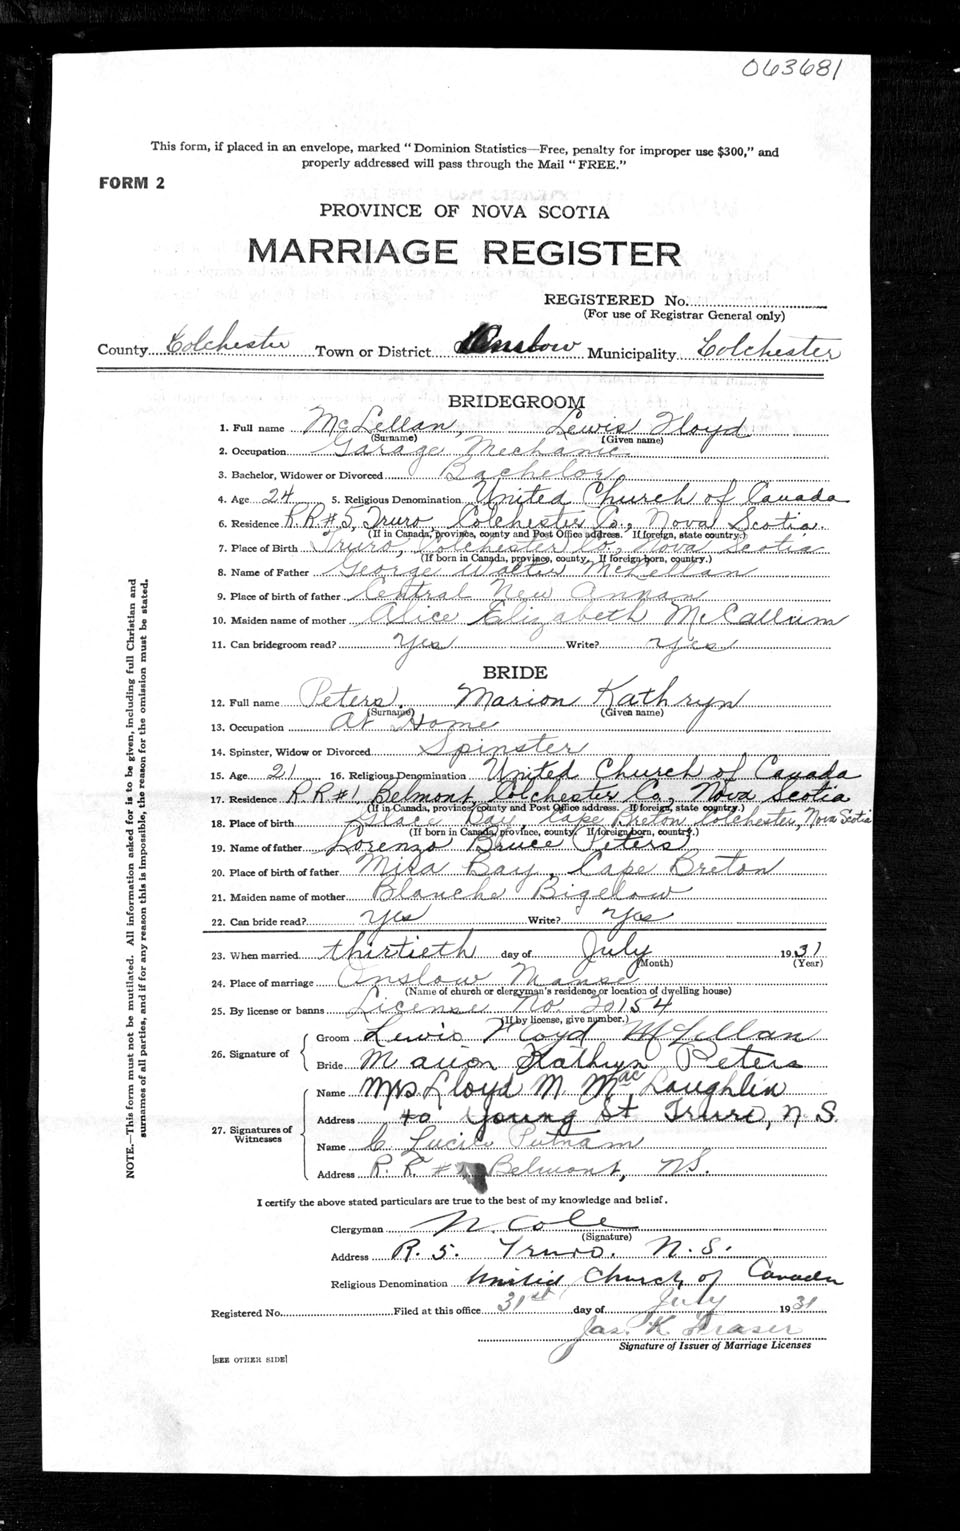 063681
This form, if placed in an envelope, marked "Dominion Statistics—Free, penalty for improper use $300," and
properly addressed will pass through the Mail "FREE."
FORM 2
PROVINCE OF NOVA SCOTIA
MARRIAGE REGISTER
REGISTERED No.
(For use of Registrar General only)
County Colchester Town or District Onslow Municipality Colchester
BRIDEGROOM
1. Full name McLellan, Lewis Floyd
(Surname) (Given name)
2. Occupation Garage Mechanic
3. Bachelor, Widower or Divorced Bachelor
4. Age 24 5. Religious Denomination United Church of Canada
6. Residence R.R.#5, Truro, Colchester Co., Nova Scotia.
(If in Canada, province, county and Post Office address. If foreign, state country.)
7. Place of Birth Truro, Colchester Co., Nova Scotia
(If born in Canada, province, county. If foreign born, country.)
8. Name of Father George Walter McLellan
9. Place of birth of father Central New Annan
10. Maiden name of mother Alice Elizabeth McCallum
11. Can bridegroom read? Yes Write? Yes
BRIDE
12. Full name Peters, Marion Kathryn
(Surname) (Given name)
13. Occupation At Home
14. Spinster, Widow or Divorced Spinster
15. Age 21 16. Religious Denomination United Church of Canada
17. Residence R.R#1, Belmont, Colchester Co, Nova Scotia
(If in Canada, province, county and Post Office address. If foreign, state country.)
18. Place of birth Glace Bay, Cape Breton Colchester, Nova Scotia
(If born in Canada, province, county. If foreign born, country.)
19. Name of father Lorenzo Bruce Peters
20. Place of birth of father Mira Bay, Cape Breton
21. Maiden name of mother Blanche Bigelow
22. Can bride read? Yes Write? Yes
23. When married thirtieth day of July 1931
(Month) (Year)
24. Place of marriage Onslow Manse
(Name of church or clergyman's residence or location of dwelling house)
25. By license or banns License No. 20154
(If by license, give number.)
26. Signature of
Groom Lewis Floyd McLellan
Bride Marion Kathryn Peters
27. Signatures of Witnesses
Name Mrs Lloyd M. MacLaughlin
Address to Young St Truro, N.S.
Name C. Lucile Putnam
Address R.R.# Belmont, N.S.
I certify the above stated particulars are true to the best of my knowledge and belief.
Clergyman N. Cole
(Signature)
Address R. 5. Truro. N.S.
Religious Denomination United Church of Canada
Registered No. Filed at this office 31st day of July 1931
Jas. K. Fraser
Signature of Issuer of Marriage Licenses
[SEE OTHER SIDE]
NOTE.—This form must not be mutilated. All information asked for is to be given, including full Christian and
surnames of all parties, and if for any reason this is impossible, the reason for the omission must be stated.